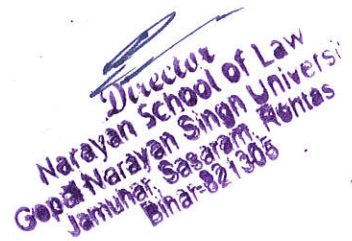 Director
Narayan School of Law
Gopal Narayan Singh Universi
Jamuhar, Sasaram, Rohtas
Bihar-821305